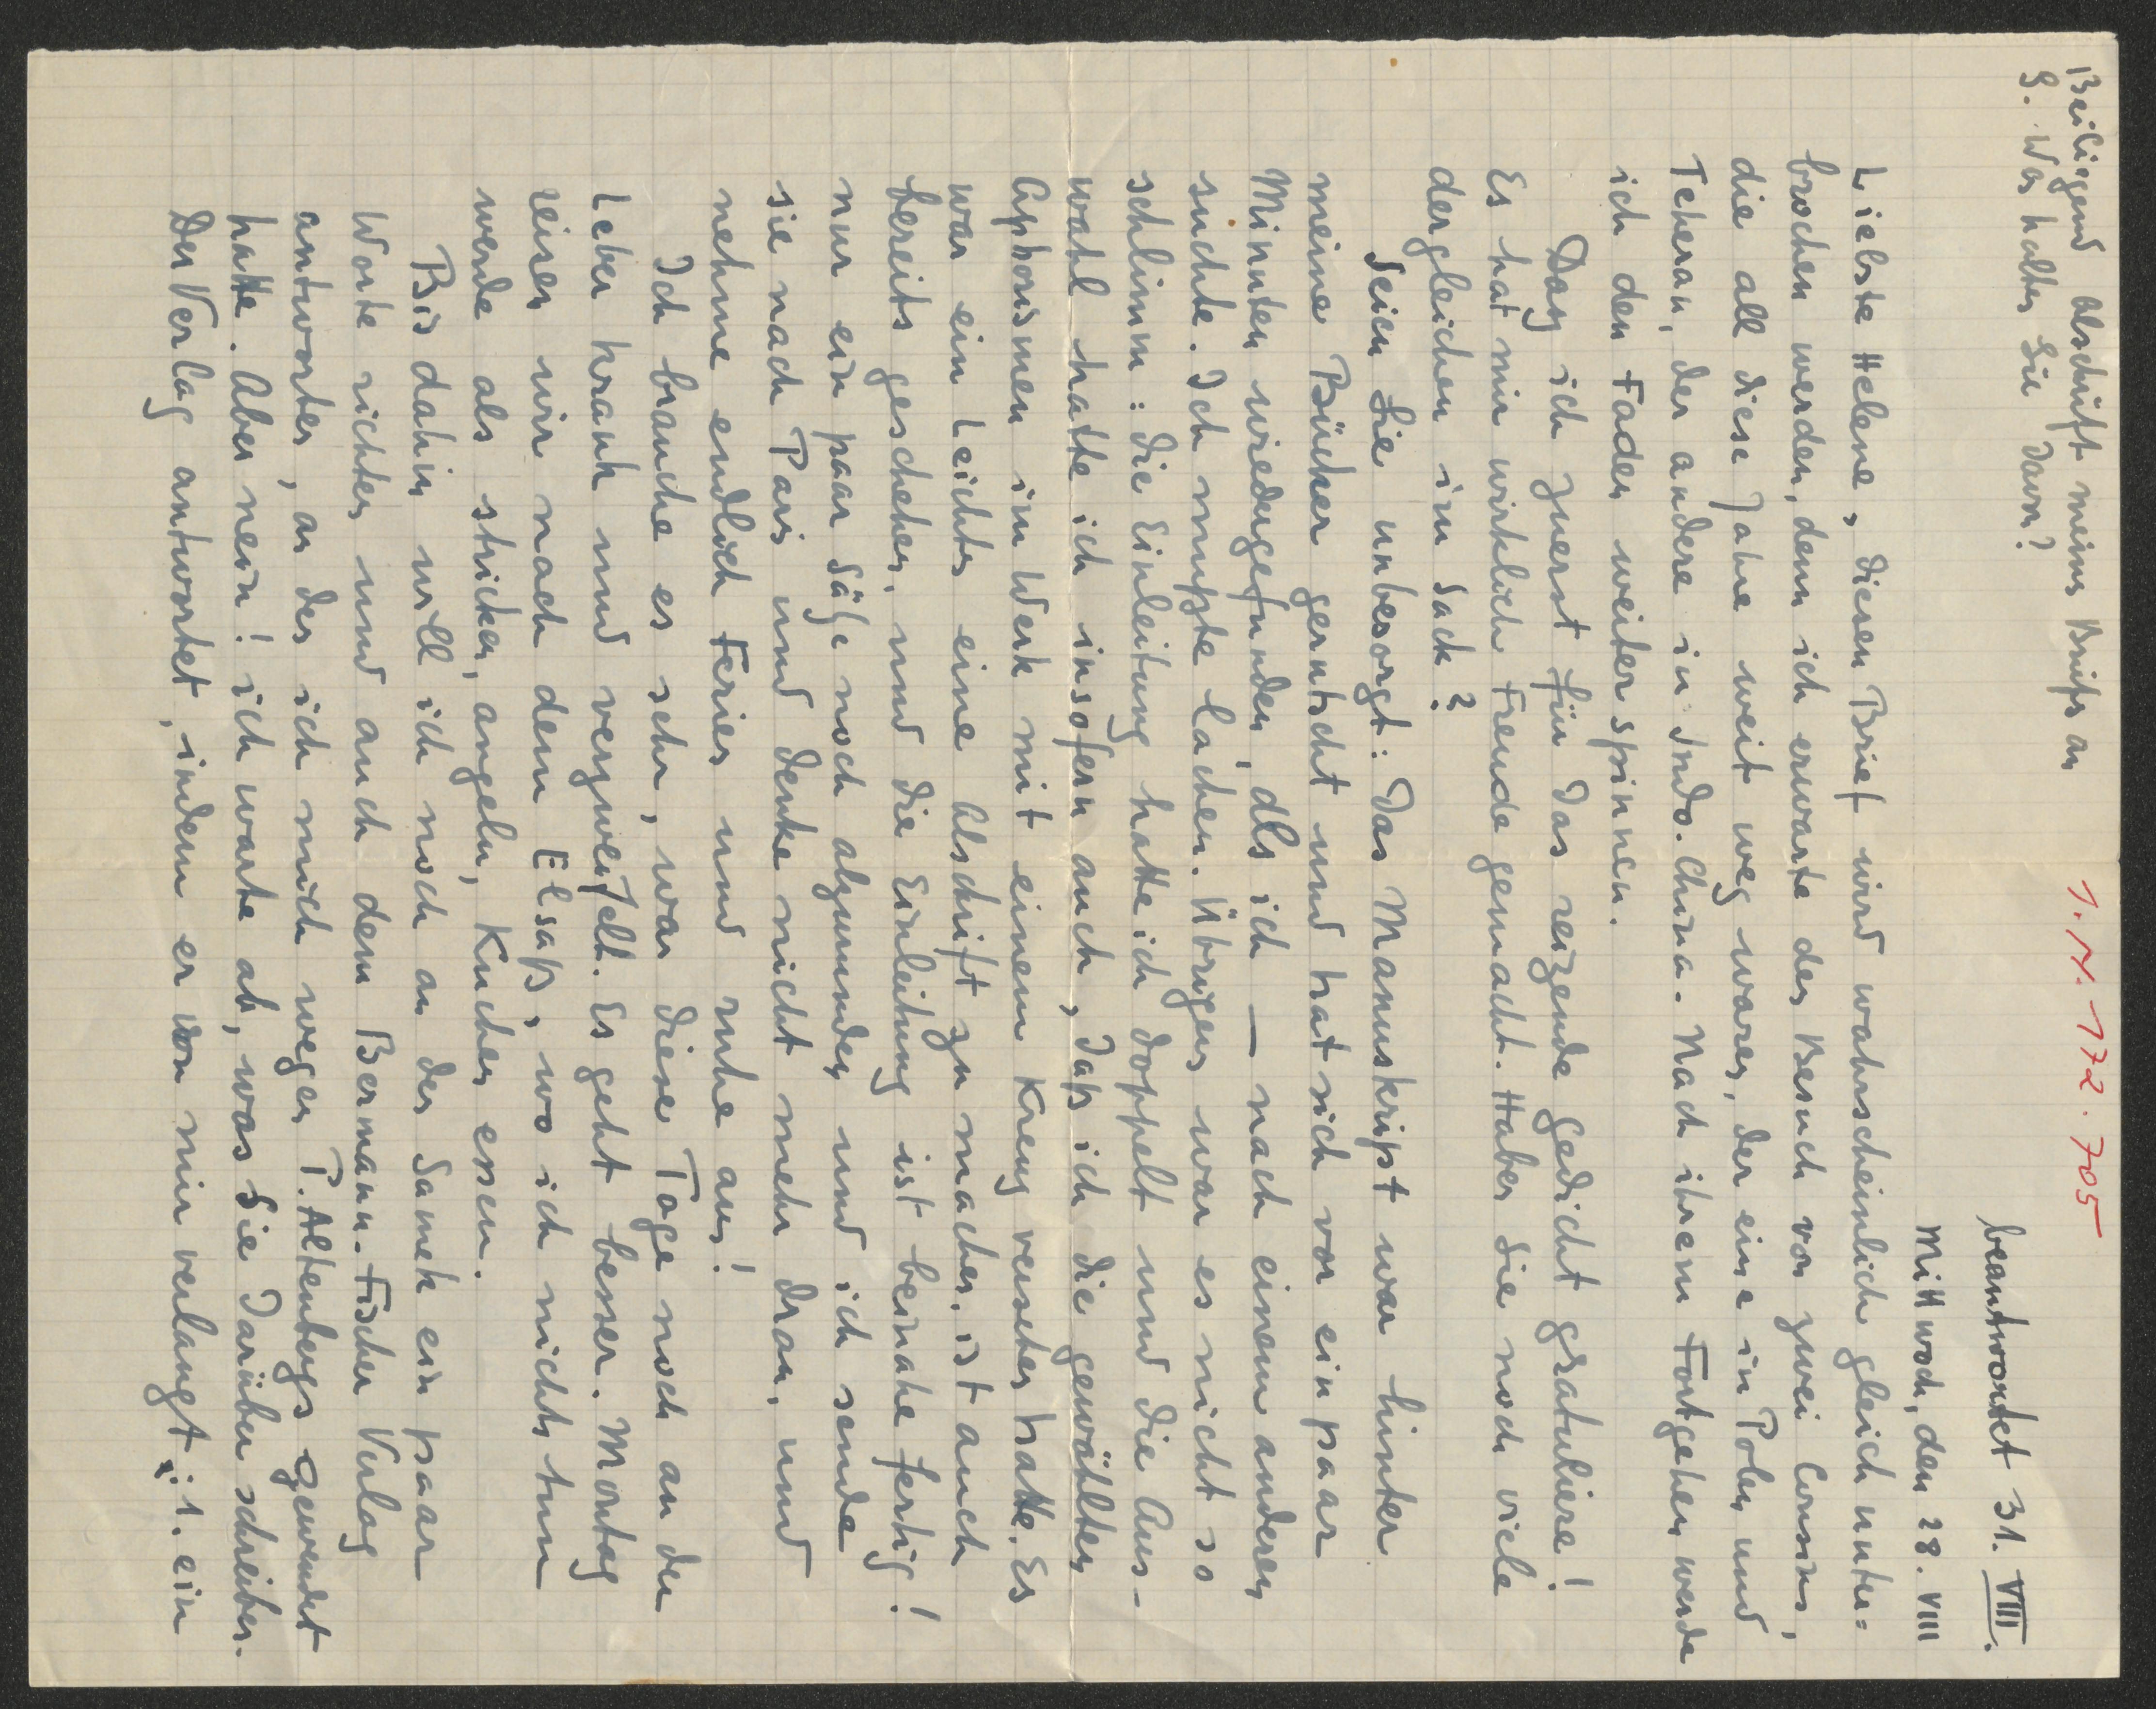 Beiliegend Abschrift meines Briefes an
S. Was halten Sie davon?
1. N. 172.705
beantwortet 31. VIII.
Mittwoch, den 28. VIII
Liebste Helene, diesen Brief wird wahrscheinlich gleich unter-
brochen werden, denn ich erwarte den Besuch von zwei Cousins,
die all diese Jahre weit weg waren, der eine in Polen und
Teheran, der andere in Indo-China. Nach ihrem Fortgehen werde
ich den Faden weiterspinnen.
Dass ich zuerst für das reizende Gedicht gratuliere!
Es hat mir wirklich Freude gemacht. Haben Sie noch viele
dergleichen im Sack?
Seien Sie unbesorgt: das Manuskript war hinter
meine Bücher gerutscht und hat sich vor ein paar
Minuten wiedergefunden, als ich — nach einem anderen
suchte. Ich mußte lachen. Übrigens war es nicht so
schlimm: die Einleitung hatte ich doppelt und die Aus-
wahl hatte ich insofern auch, daß ich die gewählten
Aphorismen im Werk mit einem Kreuz versehen hatte. Es
war ein Leichtes eine Abschrift zu machen, ist auch
bereits geschehen, und die Einleitung ist beinahe fertig!
nur ein paar Säße noch abzurunden und ich sende
sie nach Paris und denke nicht mehr dran, und
nehme endlich Ferien und ruhe aus!
Ich brauche es sehr, war diese Tage noch an der
Leber krank und verzweifelt. Es geht besser. Montag
reisen wir nach dem Elsaß, wo ich nichts tun
werde als stricken, angeln, Kuchen essen.
Bis dahin will ich noch an den Samek ein paar
Worte richten und auch dem Bermann-Fischer Verlag
antworten, an den ich mich wegen P. Altenbergs gewendet
hatte. Aber nein! ich warte ab, was Sie darüber schreiben.
Der Verlag antwortet, indem er von mir verlangt: 1. ein